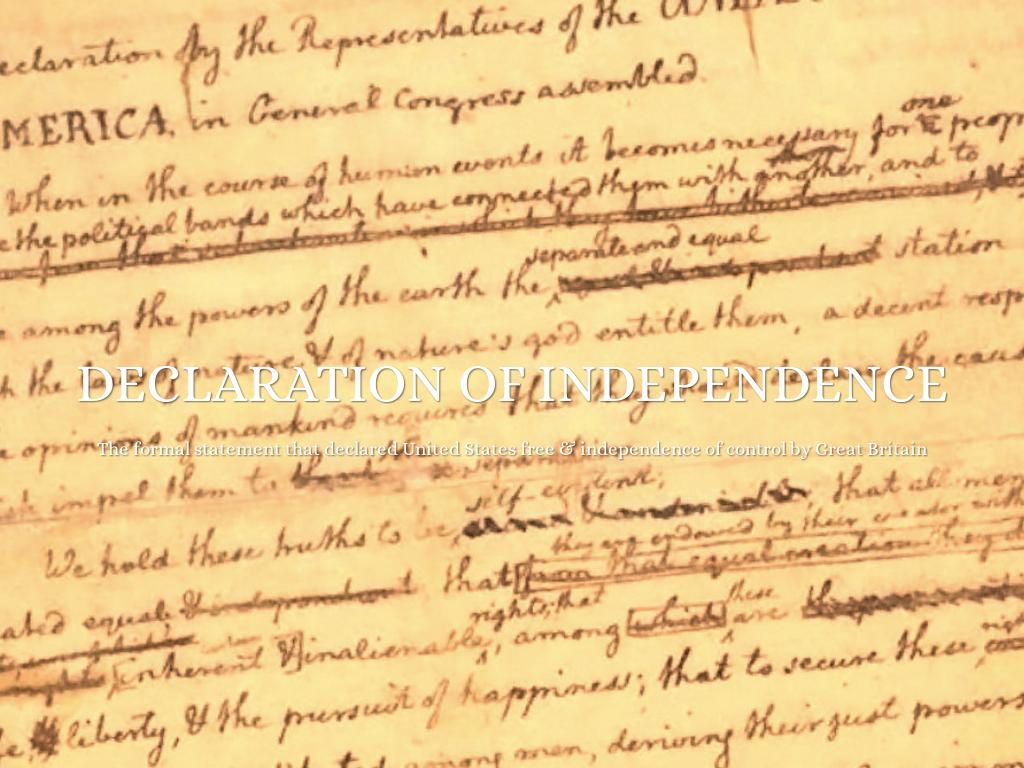 eclaration by the Representatives of the UNITED
MERICA, in General Congress assembled.
one
When in the course of human events it becomes necessary for
the political bands which have connected them with another, and to
separate and equal
among the powers of the earth the station
nature & of nature's god entitle them, a decent resp
DECLARATION OF INDEPENDENCE
opinions of mankind requires that the caus
The formal statement that declared United States free & independence of control by Great Britain
impel them to the separa
self-evident;
We hold these truths to be that all men
they are endowed by their creator with
ated equal & independent that from that equal creation they d
rights; that these
inherent & inalienable, among which are
liberty, & the pursuit of happiness; that to secure these
among men, deriving their just powers